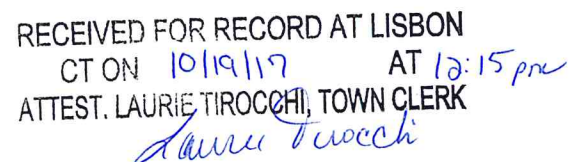 RECEIVED FOR RECORD AT LISBON
CT ON 10/19/17 AT 12:15 pm
ATTEST. LAURIE TIROCCHI, TOWN CLERK
Laurie Tirocchi